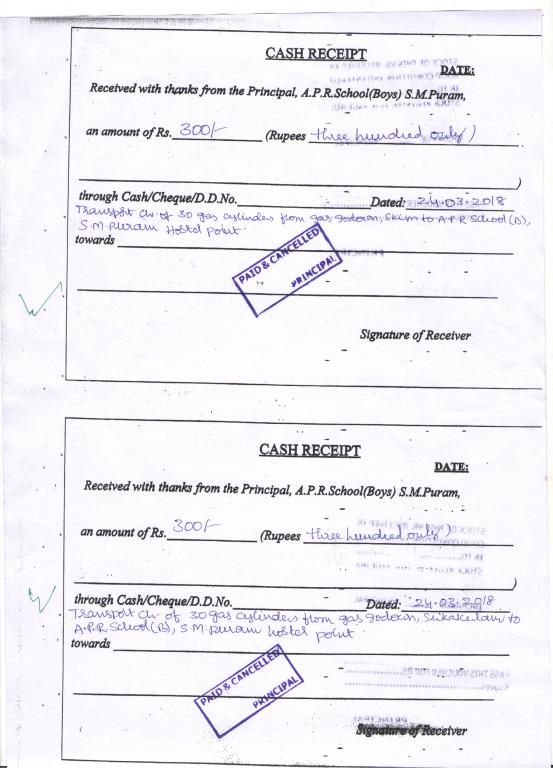 CASH RECEIPT
DATE:
Received with thanks from the Principal, A.P.R.School(Boys) S.M.Puram,
an amount of Rs. 300/- (Rupees three hundred only)
)
through Cash/Cheque/D.D.No. Dated: 24.03.2018
Transport Ch. of 30 gas cylinders from gas godown, SKLM to A.P.R School (B),
S.M.Puram Hostel point.
towards
PAID & CANCELLED
PRINCIPAL
Signature of Receiver
CASH RECEIPT
DATE:
Received with thanks from the Principal, A.P.R.School(Boys) S.M.Puram,
an amount of Rs. 300/- (Rupees three hundred only)
)
through Cash/Cheque/D.D.No. Dated: 24.03.2018
Transport Ch. of 30 gas cylinders from gas godown, Srikakulam to
A.P.R School (B), S.M.puram hostel point.
towards
PAID & CANCELLED
PRINCIPAL
Signature of Receiver